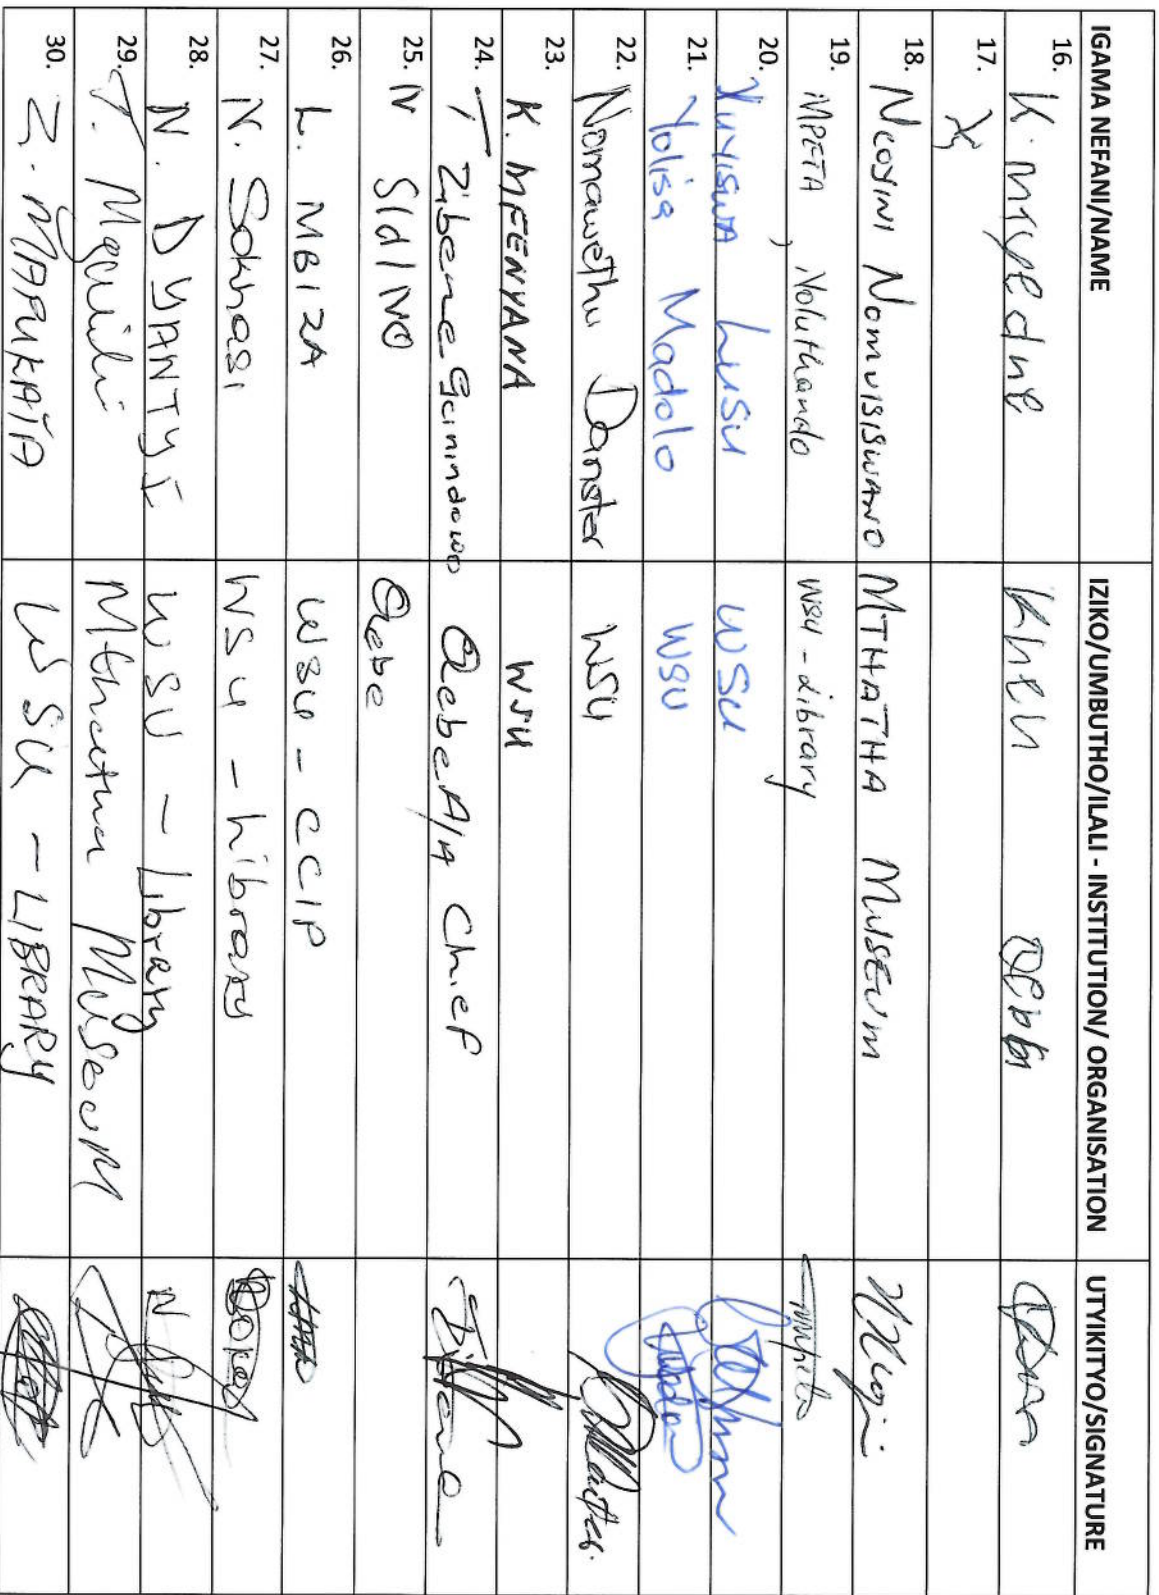 IGAMA NEFANI/NAME IZIKO/UMBUTHO/ILALI - INSTITUTION/ ORGANISATION UTYIKITYO/SIGNATURE
16. K.
17.
18. Ncoyini Nomvisiswano MTHATHA MUSEUM
19. MPETA, Noluthando WSU - Library
20. Vuyiswa Lusu WSU
21. Yolisa Madolo WSU
22. Nomawethu Danster WSU
23. K. MFENYANA WSU
24. T Zibene Gcinindawo Qebe A/A Chief
25. N Sidino Qebe
26. L. MBIZA WSU - CCIP
27. N. Sokhasi WSU - Library
28. N. DYANTYI WSU - Library
29. T. Mgquili Mthatha MuseuM
30. Z. MAPUKATA WSU - LIBRARY